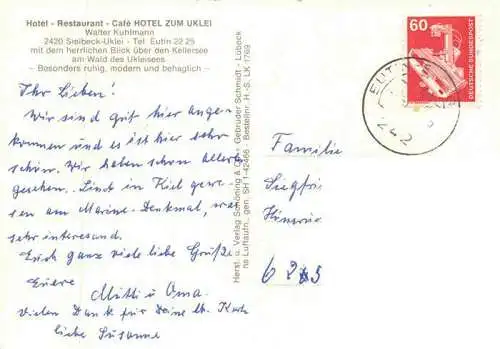 Hotel - Restaurant - Café HOTEL ZUM UKLEI
Walter Kuhlmann
2420 Sielbeck-Uklei - Tel. Eutin 22 25
mit dem herrlichen Blick über den Kellersee
am Wald des Ukleisees
– Besonders ruhig, modern und behaglich –
Ihr Lieben!
Wir sind gut hier ange-
kommen und es ist hier sehr
schön. Wir haben schon allerlei
gesehen. Sind in Kiel gewe-
sen am Marine-Denkmal, war
sehr interessand.
Euch ganz viele liebe Grüße
Eure
Mutti u. Oma.
Vielen Dank für Deine lb. Karte
liebe Susanne
Herst. u. Verlag Schöning & Co + Gebrüder Schmidt - Lübeck
ns Luftaufn., gen. SH 1-42466 - Bestellnr. H.-S. LK 1769
60
DEUTSCHE BUNDESPOST
EUTIN
242
Familie
Siegfri